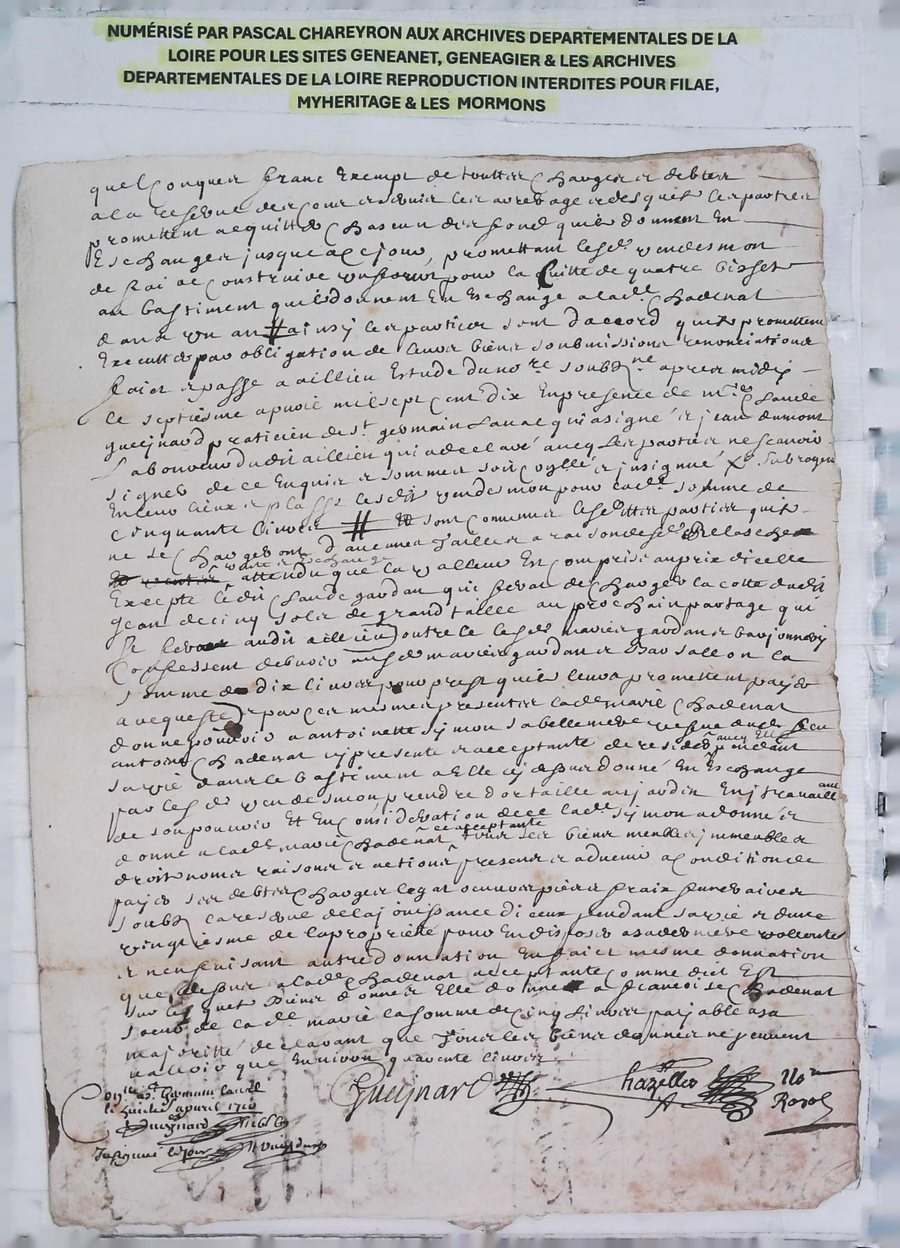 NUMÉRISÉ PAR PASCAL CHAREYRON AUX ARCHIVES DEPARTEMENTALES DE LA
LOIRE POUR LES SITES GENEANET, GENEAGIER & LES ARCHIVES
DEPARTEMENTALES DE LA LOIRE REPRODUCTION INTERDITES POUR FILAE,
MYHERITAGE & LES MORMONS
quelconques franc Exempt de touttes charges et debtes
a la reserve des cens et servis les arrerages desquels les parties
promettent acquitter chascun des fond quils donnent En
Eschanges jusques a ce jour, promettant lesds vendesmon
de fai de construire pour la suitte de quatre bisset
au bastiment quils donnent En Eschange a lade Chadenat
dans un an # ainsy les parties sont daccord quils promettent
Executter par obligation de leurs biens soubmissions renonciations
faict et passé a aillieu Estude du nore soubzne apres midy
le septiesme apvril mil sept cent dix En presence de mre Claude
gueynard praticien de st germain Laval qui a signé et jean dumont
Laboureur dudit aillieu qui a declaré avecq Les parties ne scavoir
signer de ce Enquis et sommés soit coullé et insignué subroger
En leur lieux et plasse lesdts vendesmon pour lade somme de
cinquante livres # sont convenues lesdittes parties quils
ne se chargeront d'aucunes tailles a raison desds
attendu que la valleur Est comprise au prix dicelle
Excepte le dit Claude gardan qui sera de charger la cotte dudit
jean de cinq sols de grand taille au prochain partage qui
se fera audit aillieu outre ce lesds maries gardan et baujonnery
Confessent debvoir auxds maries gardan et la
somme de dix livres pour prest quils leurs promettent payer
a requeste et par ces mesmes presentes lade marie Chadenat
donne pouvoir a antoinette symon sa bellemere vefve dudt feu
antoine Chadenat cy presente et acceptante de resider pendant
sa vie dans le bastiment a Elle cy dessus donné En Eschange
par lesds vendesmon prendre dortaille au jardin En y travaillant
de son pouvoir Et En considération de ce lade symon a donné et
donne a lade marie Chadenat ce acceptante tous ses biens meubles immeubles
droit noms raisons et actions presens et advenir a condition de
payer ses debtes charges legat oeuvres pieres fraix funeraires
soubz la reserve de la jouissance diceux pendant sa vie et d'une
vingtiesme de la propriété pour En disposer a sa derniere vollonté
et n'en faisant autre donnation En faict mesme donnation
que dessus a lade Chadenat acceptante comme dict Est
sur lesquels biens donnés Elle donne a francoise Chadenat
soeur de lade marie la somme de cinq livres payable a sa
majoritté declarant que tous les biens donnés ne peuvent
valloir que Environ quarante livres
Gueynard
Chazelles
Nore
Royal
Conlle a St Germain laval
le huictie apvril 1710
Gueynard
Insignué led jour